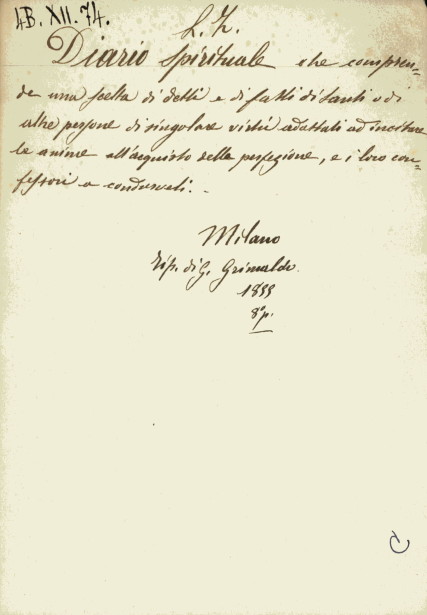 4B. XII. 74.
L. Z.
Diario spirituale che compren-
de una scelta di detti e di fatti di santi o di
altre persone di singolare virtù adattati ad incitare
le anime all'acquisto della perfezione, e i loro con-
fessori a condurveli. -
Milano
Tip. di G. Grimaldo.
1855
8° p.
C